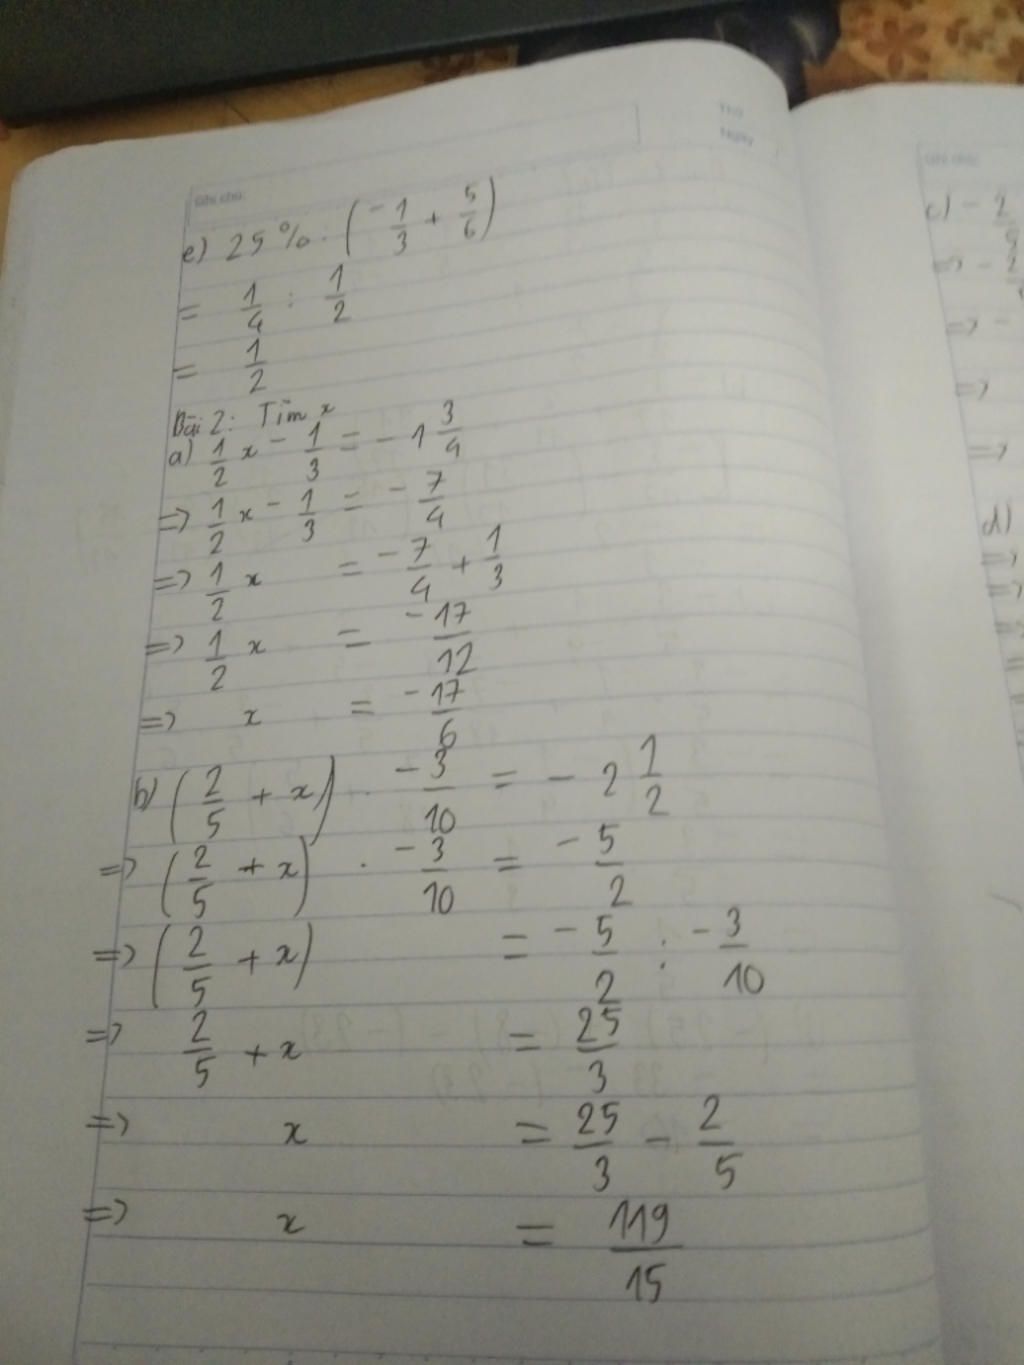 Thứ
Ngày
Ghi chú:
e) 25% : (-1/3 + 5/6)
= 1/4 : 1/2
= 1/2
Bài 2: Tìm x
a) 1/2 x - 1/3 = - 1 3/4
=> 1/2 x - 1/3 = - 7/4
=> 1/2 x = -7/4 + 1/3
=> 1/2 x = -17/12
=> x = -17/6
b) (2/5 + x) . -3/10 = - 2 1/2
=> (2/5 + x) . -3/10 = -5/2
=> (2/5 + x) = -5/2 : -3/10
=> 2/5 + x = 25/3
=> x = 25/3 - 2/5
=> x = 119/15
Ghi chú:
c) - 2
=> - 2
=> -
=>
=>
d)
=>
=>